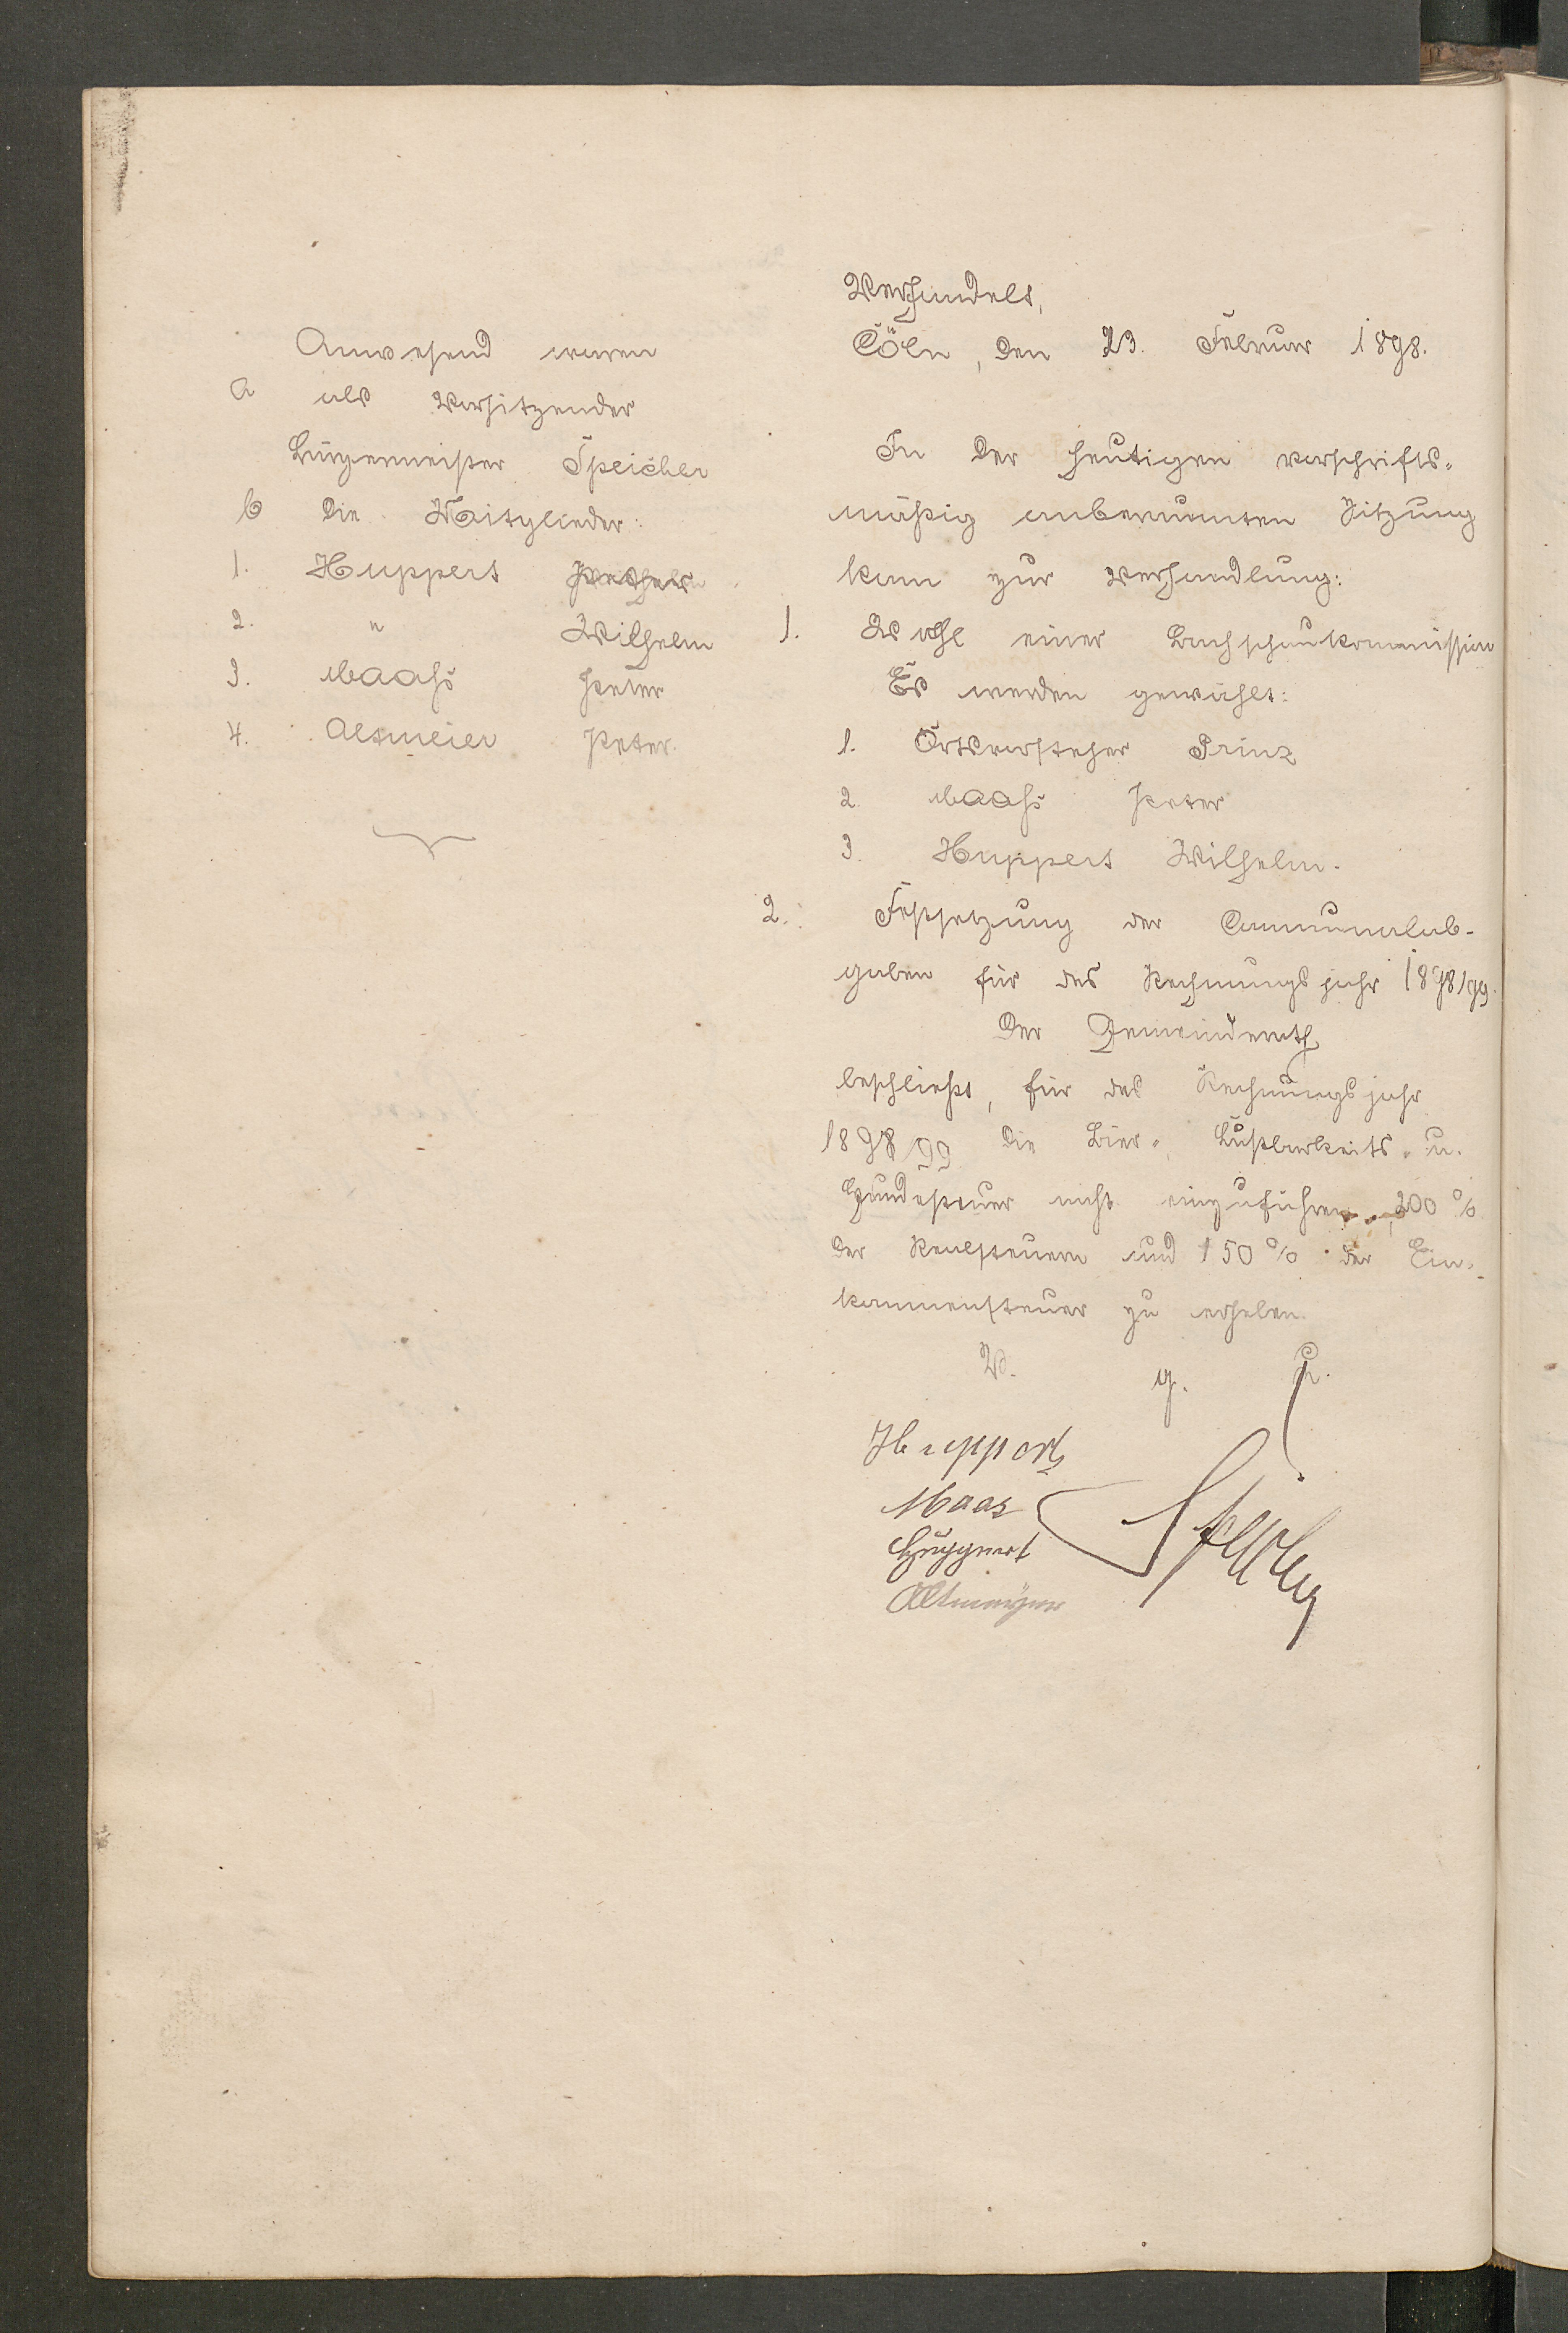 Anwesend waren
a als Vorsitzender
Bürgermeister Speicher
b die Mitglieder:
1. Huppert
2. " Wilhelm
3. Maaß Peter
4. Altmeier Peter.
Verhandelt,
Cöln, den 23. Februar 1898.
In der heutigen vorschrifts-
mäßig anberaumten Sitzung
kam zur Verhandlung:
1. Wahl einer Bachschaukommission
Es werden gewählt:
1. Ortsvorsteher Prinz
2. Maaß Peter
3. Huppert Wilhelm.
2. Festsetzung der Communalab-
gaben für das Rechnungsjahr 1898/99.
Der Gemeinderath
beschließt, für das Rechnungsjahr
1898/99 die Bier-, Lustbarkeits- u.
Hundesteuer nicht einzuführen, 200 %
der Realsteuern und 150 % der Ein-
kommensteuer zu erheben.
V. g. u.
Huppert
Maas
Huppert
Altmeyer
Speicher